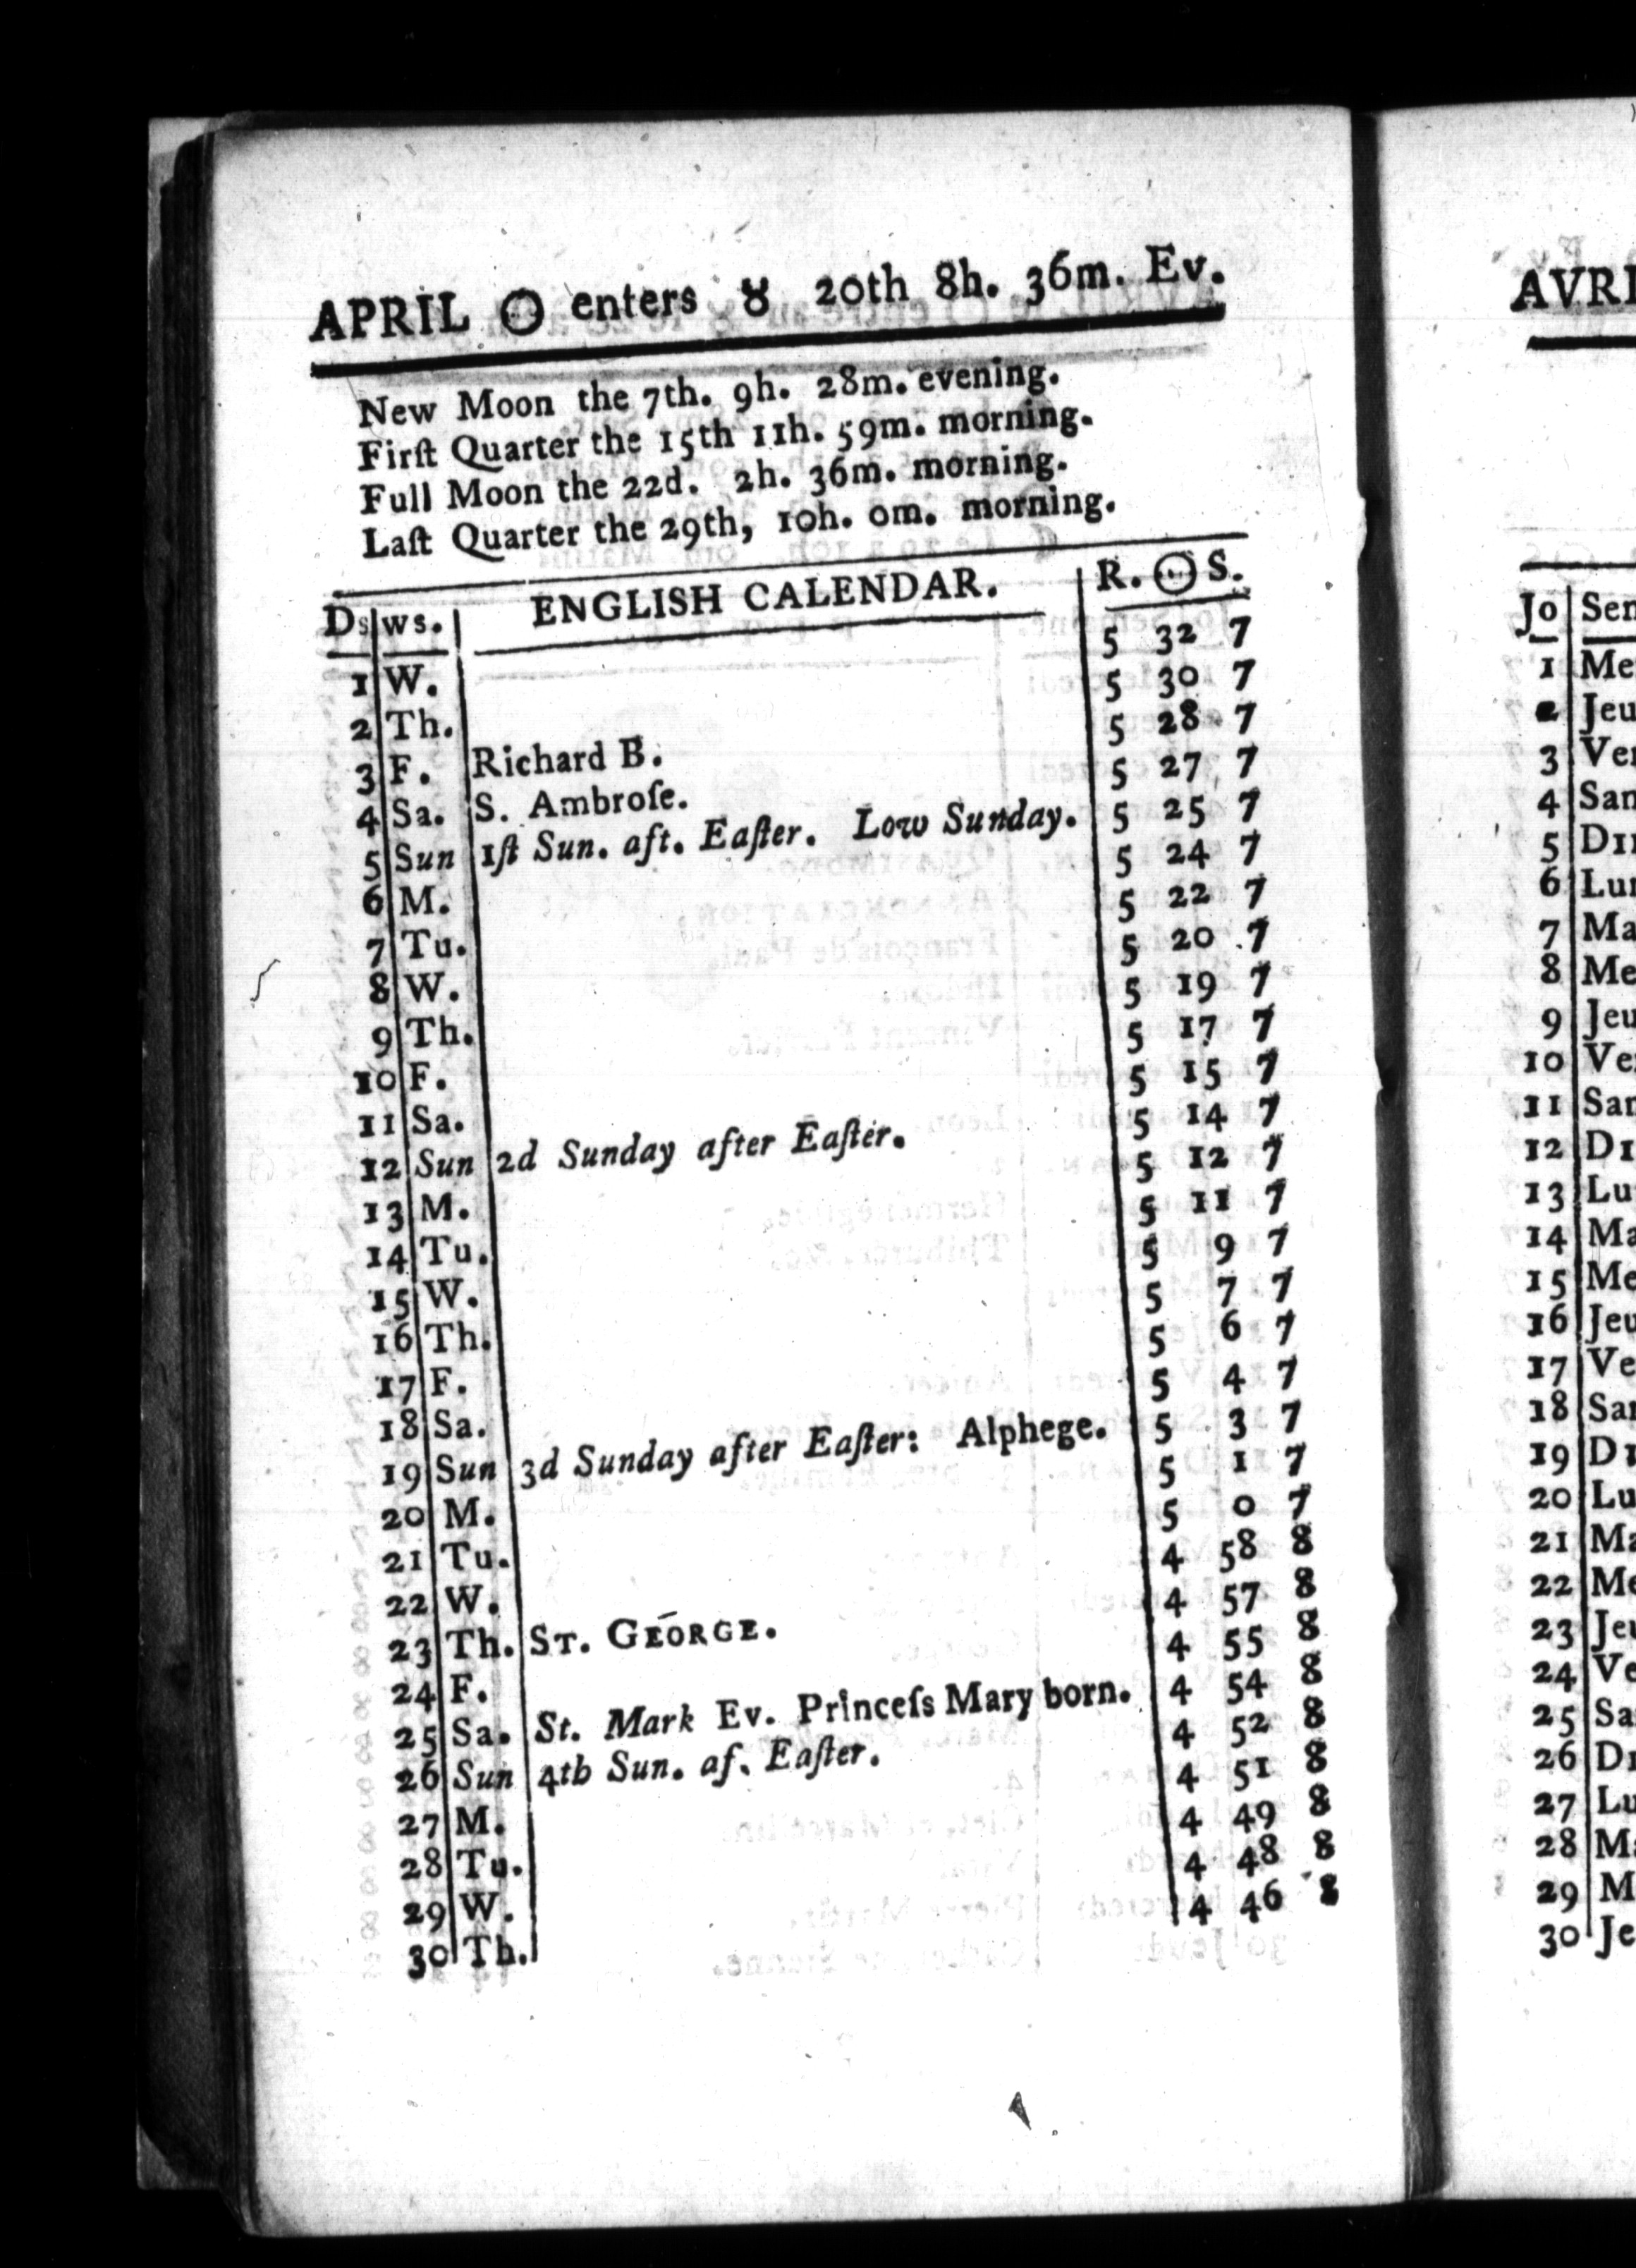 APRIL ☉ enters ♉ 20th 8h. 36m. Ev.
New Moon the 7th. 9h. 28m. evening.
Firſt Quarter the 15th 11h. 59m. morning.
Full Moon the 22d. 2h. 36m. morning.
Laſt Quarter the 29th, 10h. 0m. morning.
Ds ws. ENGLISH CALENDAR. R. ☉ S.
1 W. 5 32 7
2 Th. 5 30 7
3 F. Richard B. 5 28 7
4 Sa. S. Ambroſe. 5 27 7
5 Sun 1ſt Sun. aft. Eaſter. Low Sunday. 5 25 7
6 M. 5 24 7
7 Tu. 5 22 7
8 W. 5 20 7
9 Th. 5 19 7
10 F. 5 17 7
11 Sa. 5 15 7
12 Sun 2d Sunday after Eaſter. 5 14 7
13 M. 5 12 7
14 Tu. 5 11 7
15 W. 5 9 7
16 Th. 5 7 7
17 F. 5 6 7
18 Sa. 5 4 7
19 Sun 3d Sunday after Eaſter: Alphege. 5 3 7
20 M. 5 1 7
21 Tu. 5 0 7
22 W. 4 58 8
23 Th. ST. GEORGE. 4 57 8
24 F. 4 55 8
25 Sa. St. Mark Ev. Princeſs Mary born. 4 54 8
26 Sun 4th Sun. af. Eaſter. 4 52 8
27 M. 4 51 8
28 Tu. 4 49 8
29 W. 4 48 8
30 Th. 4 46 8
AVRI
Jo Sem
1 Me
2 Jeu
3 Ver
4 Sam
5 DIM
6 Lun
7 Ma
8 Me
9 Jeu
10 Ve
11 Sam
12 DI
13 Lu
14 Ma
15 Me
16 Jeu
17 Ve
18 Sa
19 DI
20 Lu
21 Ma
22 Me
23 Jeu
24 Ve
25 Sa
26 DI
27 Lu
28 Ma
29 M
30 Je